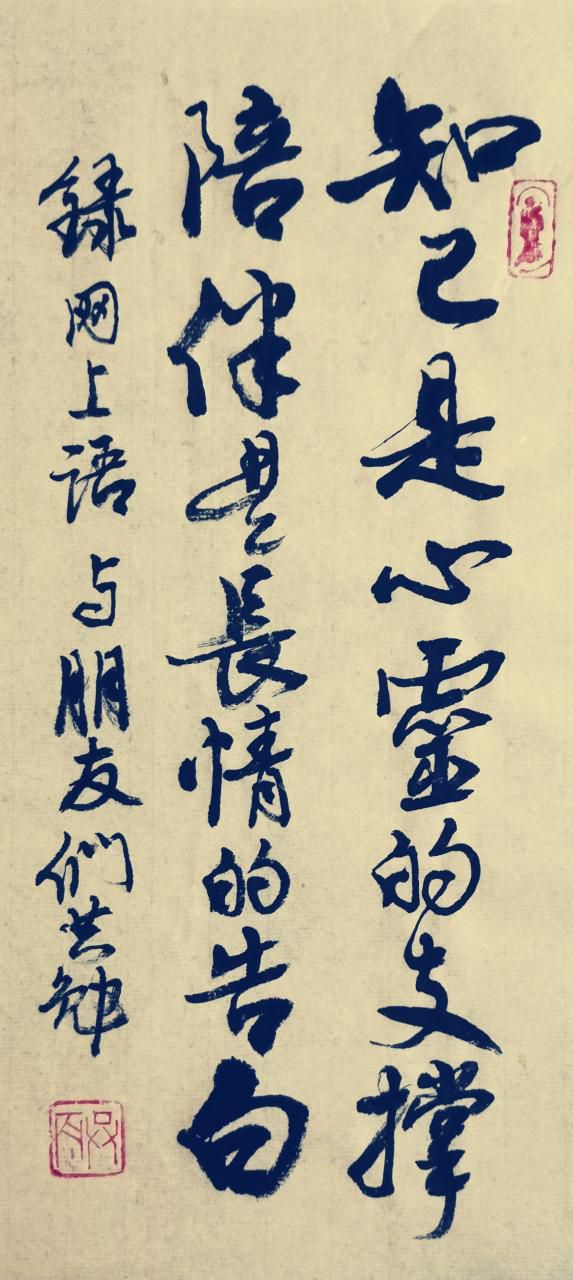 知己是心靈的支撑
陪伴是長情的告白
録网上语与朋友們共勉